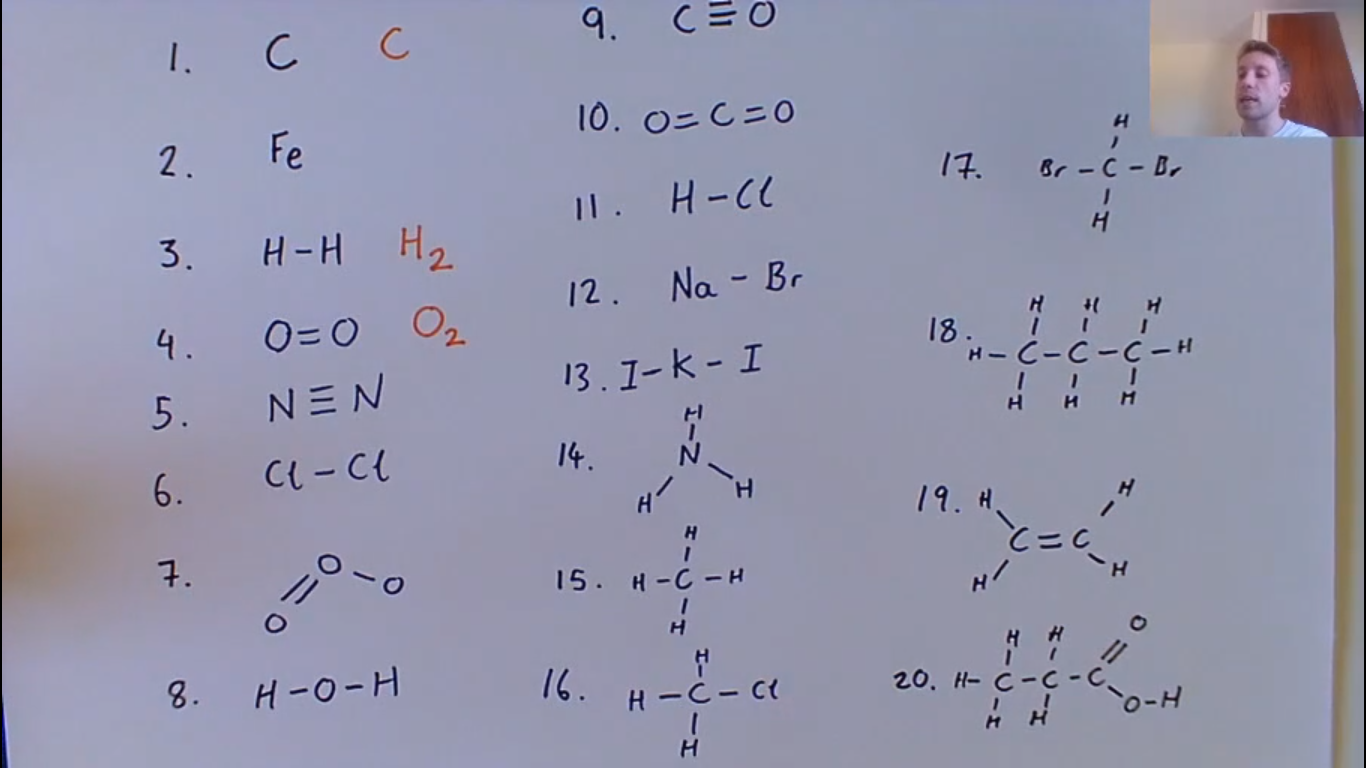 1. C C
2. Fe
3. H-H H₂
4. O=O O₂
5. N≡N
6. Cl-Cl
7. O=O-O
8. H-O-H
9. C≡O
10. O=C=O
11. H-Cl
12. Na-Br
13. I-K-I
14. H
N
H H
15. H
H-C-H
H
16. H
H-C-Cl
H
17. H
Br-C-Br
H
18. H H H
H-C-C-C-H
H H H
19. H H
C=C
H H
20. H H O
H-C-C-C
H H O-H